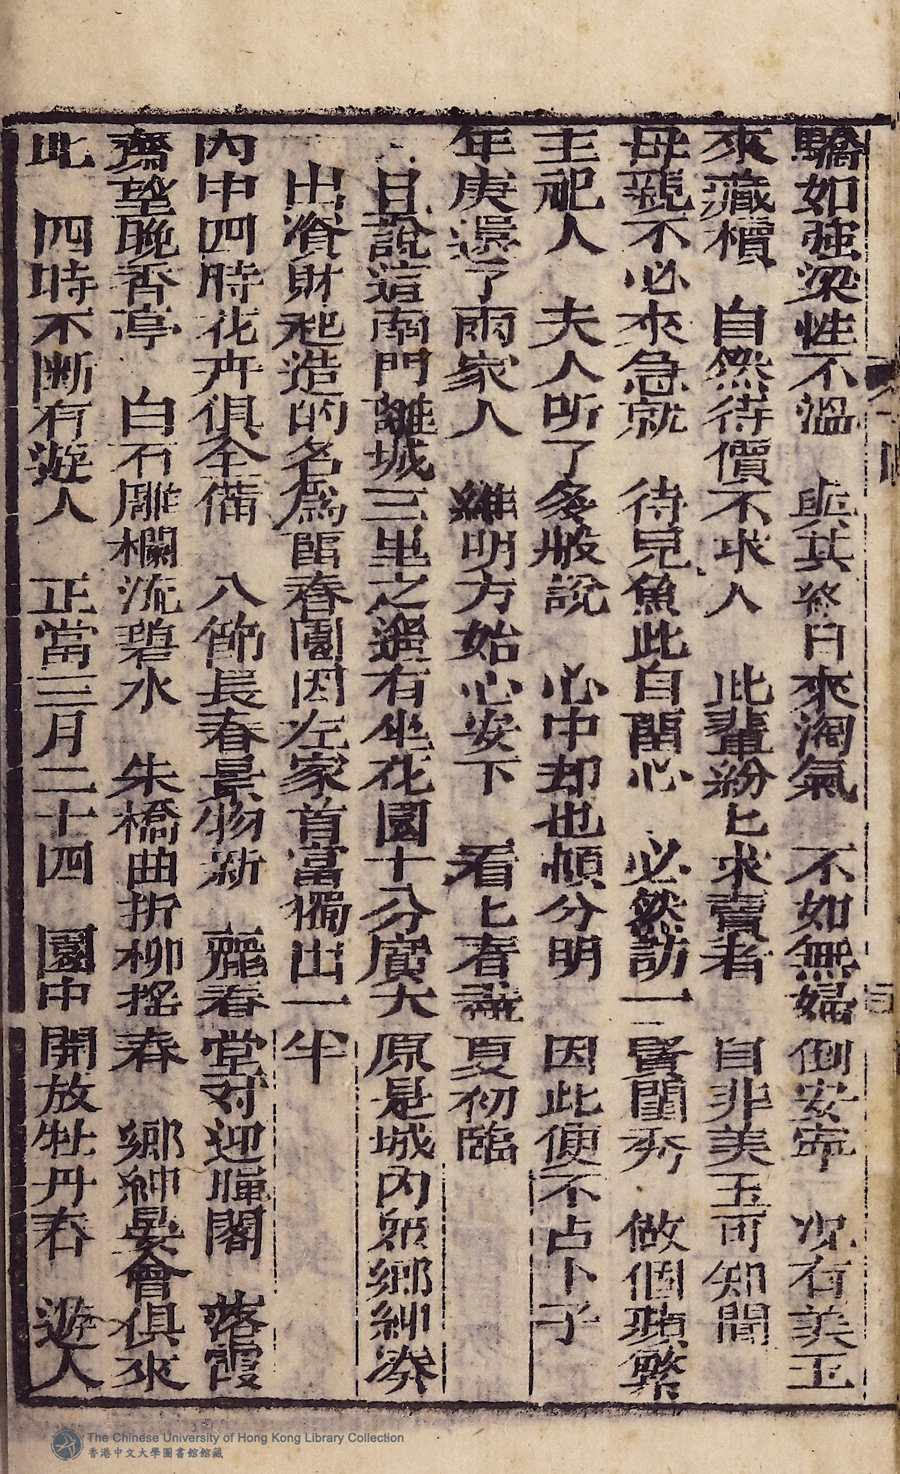 驕如強梁性不溫　與其終日來淘氣　不如無婦倒安寧　况有美玉
來藏櫝　自然待價不求人　此輩紛匕求賣者　自非美玉可知聞
母親不必來急就　待兒魚此自留心　必然訪一賢閨秀　做個蘋蘩
主祀人　夫人听了多般說　心中却也頓分明　因此便不占卜子
年庚還了兩家人　維明方始心安下　看匕春謝夏初臨
且說這南門離城三里之遥有坐花園十分廣大原是城內衆鄉紳湊
出濱財起造的名爲留春園因左家首富獨出一半
內中四時花卉俱全備　八節長春景物新　麗春堂对迎暉閣　落霞
齋望晚香亭　白石雕欄流碧水　朱橋曲折柳搖春　鄉紳晏會俱來
此　四時不断有遊人　正當三月二十四　園中開放牡丹春　遊人
The Chinese University of Hong Kong Library Collection
香港中文大學圖書館館藏